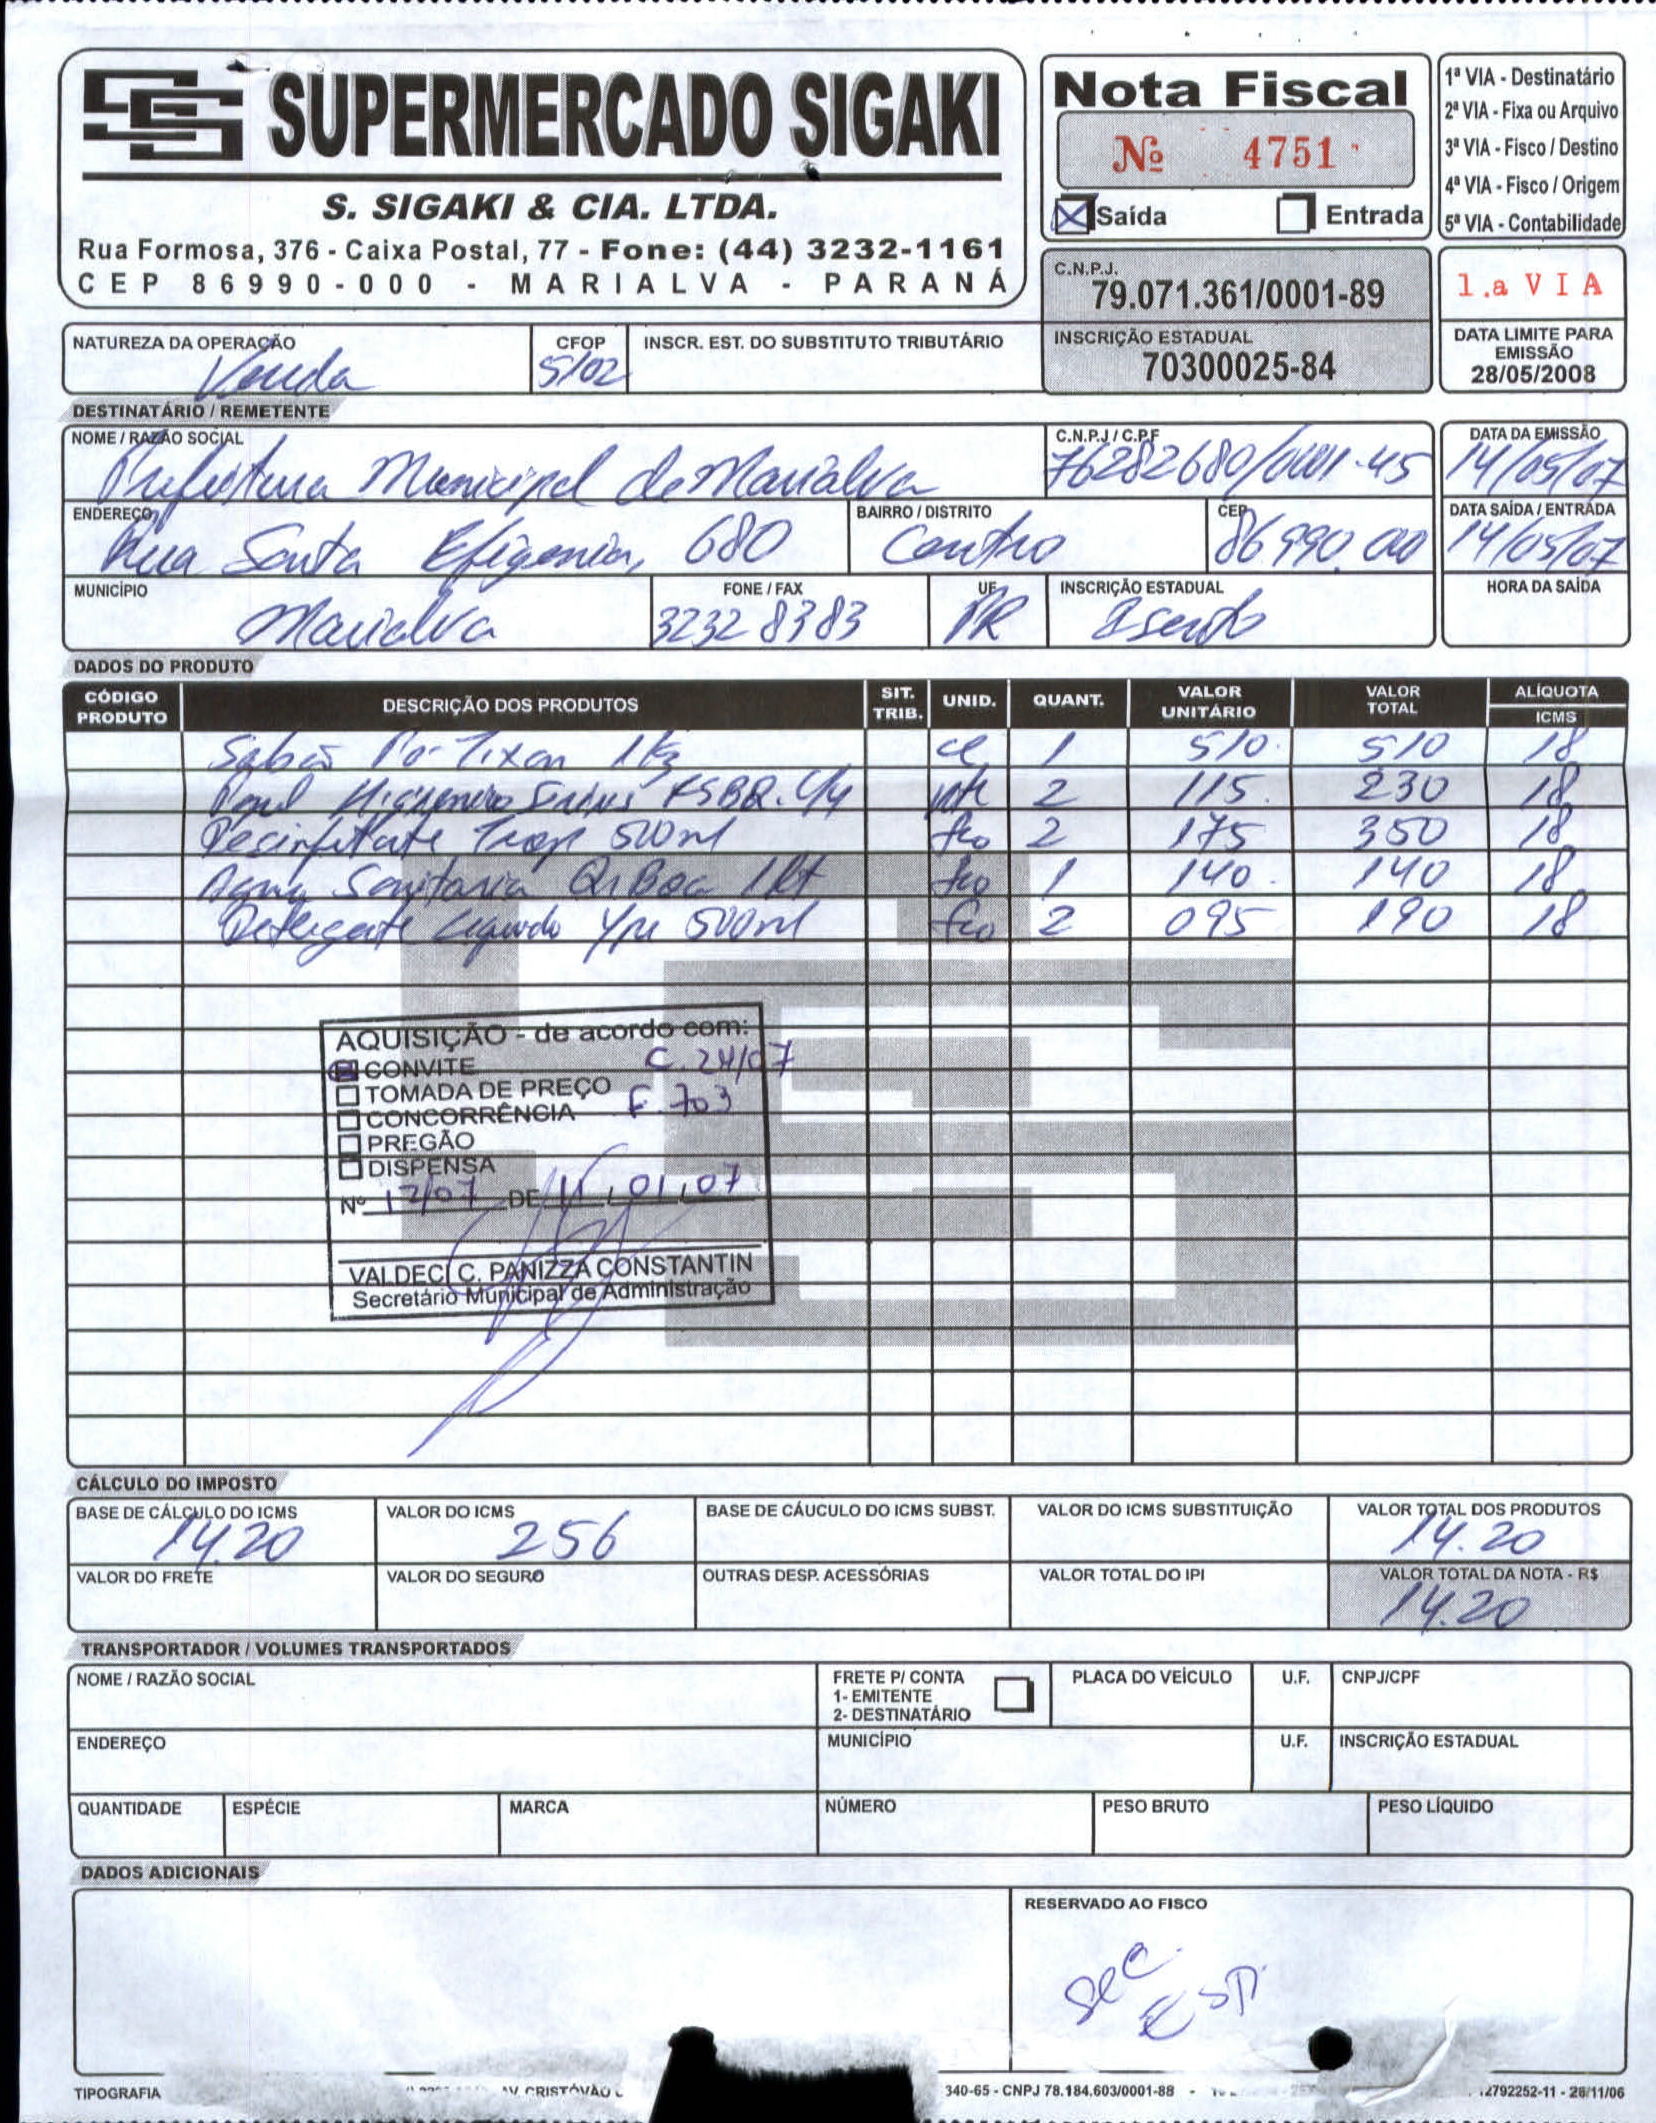 SUPERMERCADO SIGAKI
S. SIGAKI & CIA. LTDA.
Rua Formosa, 376 - Caixa Postal, 77 - Fone: (44) 3232-1161
CEP 86990-000 - MARIALVA - PARANÁ
Nota Fiscal
Nº 4751
Saída Entrada
1ª VIA - Destinatário
2ª VIA - Fixa ou Arquivo
3ª VIA - Fisco / Destino
4ª VIA - Fisco / Origem
5ª VIA - Contabilidade
C.N.P.J.
79.071.361/0001-89
1.a VIA
INSCRIÇÃO ESTADUAL
70300025-84
DATA LIMITE PARA
EMISSÃO
28/05/2008
NATUREZA DA OPERAÇÃO CFOP INSCR. EST. DO SUBSTITUTO TRIBUTÁRIO
Venda 5102
DESTINATÁRIO / REMETENTE
NOME / RAZÃO SOCIAL C.N.P.J / C.P.F DATA DA EMISSÃO
Prefeitura Municipal de Marialva 76282680/0001-45 14/05/07
ENDEREÇO BAIRRO / DISTRITO CEP DATA SAÍDA / ENTRADA
Rua Santa Efigenia, 680 Centro 86.990.000 14/05/07
MUNICÍPIO FONE / FAX UF INSCRIÇÃO ESTADUAL HORA DA SAÍDA
Marialva 3232 8383 PR Isento
DADOS DO PRODUTO
CÓDIGO PRODUTO DESCRIÇÃO DOS PRODUTOS SIT. TRIB. UNID. QUANT. VALOR UNITÁRIO VALOR TOTAL ALÍQUOTA ICMS
Sabão Pó Tixan 1kg cx 1 510 510 18
Papel Higienico 2 115 230 18
Desinfetante 500ml fco 2 175 350 18
Agua Sanitaria QBoa 1Lt fco 1 140 140 18
Detergente Liquido Ype 500ml fco 2 095 190 18
AQUISIÇÃO - de acordo com:
CONVITE C. 24/07
TOMADA DE PREÇO
CONCORRÊNCIA F. 703
PREGÃO
DISPENSA
Nº 12/07 DE 11/01/07
VALDECI C. PANIZZA CONSTANTIN
Secretário Municipal de Administração
CÁLCULO DO IMPOSTO
BASE DE CÁLCULO DO ICMS VALOR DO ICMS BASE DE CÁUCULO DO ICMS SUBST. VALOR DO ICMS SUBSTITUIÇÃO VALOR TOTAL DOS PRODUTOS
14.20 256 14.20
VALOR DO FRETE VALOR DO SEGURO OUTRAS DESP. ACESSÓRIAS VALOR TOTAL DO IPI VALOR TOTAL DA NOTA - R$
14.20
TRANSPORTADOR / VOLUMES TRANSPORTADOS
NOME / RAZÃO SOCIAL FRETE P/ CONTA PLACA DO VEÍCULO U.F. CNPJ/CPF
1- EMITENTE
2- DESTINATÁRIO
ENDEREÇO MUNICÍPIO U.F. INSCRIÇÃO ESTADUAL
QUANTIDADE ESPÉCIE MARCA NÚMERO PESO BRUTO PESO LÍQUIDO
DADOS ADICIONAIS
RESERVADO AO FISCO
Sec
Esp
TIPOGRAFIA AV. CRISTÓVÃO 340-65 - CNPJ 78.184.603/0001-88 - 12792252-11 - 28/11/06